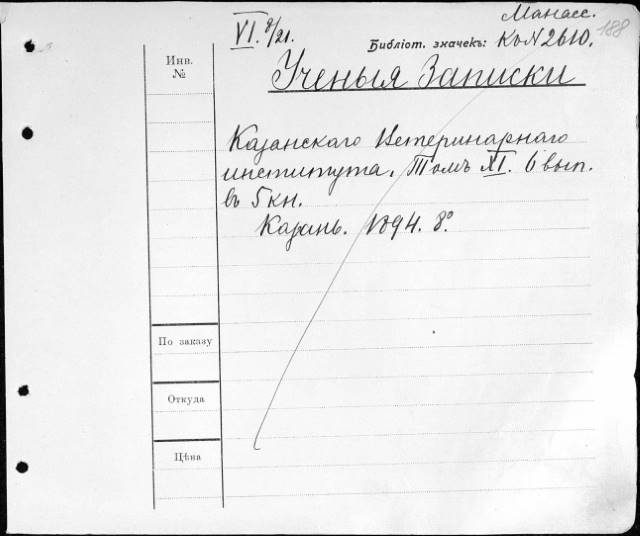 Манасс. 188
VI. 9/21.
Библіот. значекъ: Ко N 2610.
Инв.
№
Ученыя Записки
Казанскаго Ветеринарнаго
института. Томъ XI. 6 вып.
въ 5 кн.
Казань. 1894. 8º.
По заказу
Откуда
Цѣна